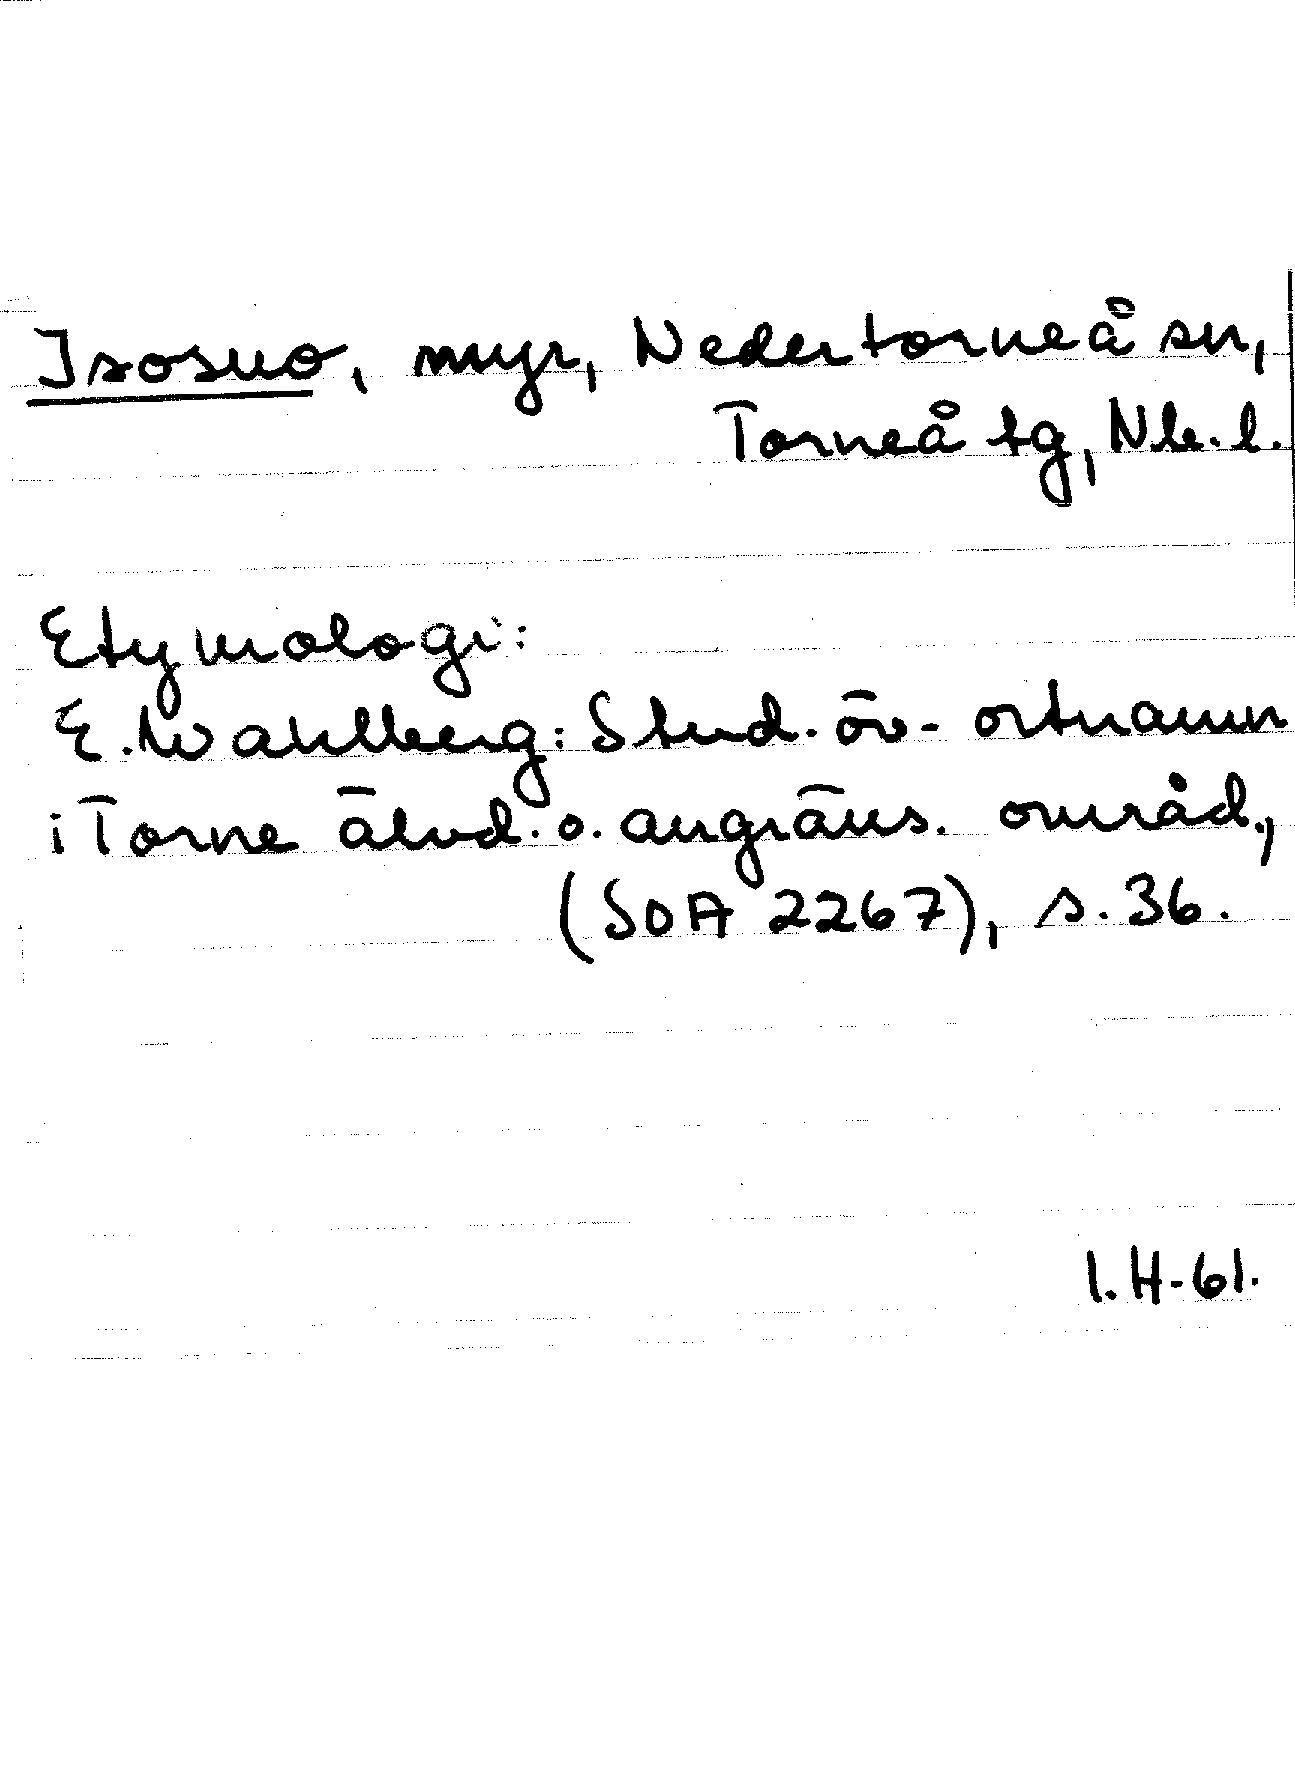 Isosuo, myr, Nedertorneå sn,
Torneå tg, Nb. l.
Etymologi:
E. Wahlberg: Stud. öv. ortnamn
i Torne älvd. o. angräns. områd.,
(SOA 2267), s. 36.
I. H-61.